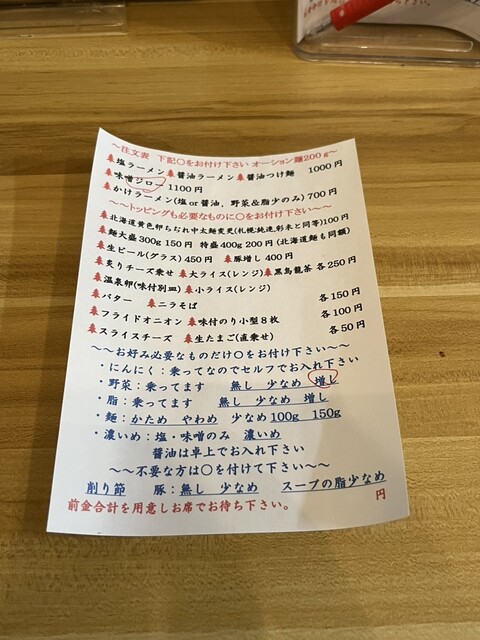 ～注文表 下記〇をお付け下さい オーション麺200g～
塩ラーメン 醤油ラーメン 醤油つけ麺 1000円
味噌ジロー 1100円
かけラーメン(塩or醤油、野菜&脂少のみ) 700円
～～トッピングも必要なものに〇をお付け下さい～～
北海道黄色卵ちぢれ中太麺変更(札幌純連,彩未と同等)100円
麺大盛300g 150円 特盛400g 200円 (北海道麺も同額)
生ビール(グラス) 450円 豚増し 400円
炙りチーズ乗せ 大ライス(レンジ) 黒烏龍茶 各250円
温泉卵(味付別皿) 小ライス(レンジ)
バター ニラそば 各150円
フライドオニオン 味付のり小型8枚 各100円
スライスチーズ 生たまご(直乗せ) 各50円
～～お好み必要なものだけ〇をお付け下さい～～
・にんにく：乗ってなのでセルフでお入れ下さい
・野菜：乗ってます 無し 少なめ 増し
・脂：乗ってます 無し 少なめ 増し
・麺：かため やわめ 少なめ100g 150g
・濃いめ：塩・味噌のみ 濃いめ
醤油は卓上でお入れ下さい
～～不要な方は〇を付けて下さい～～
削り節 豚：無し 少なめ スープの脂少なめ
前金合計を用意しお席でお待ち下さい。 円